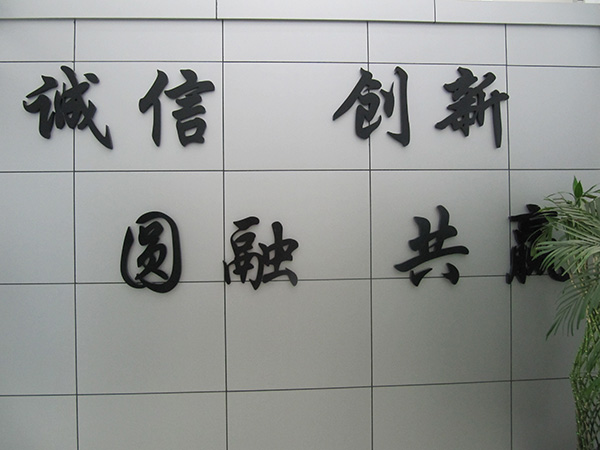 诚信 创新
圆融 共赢